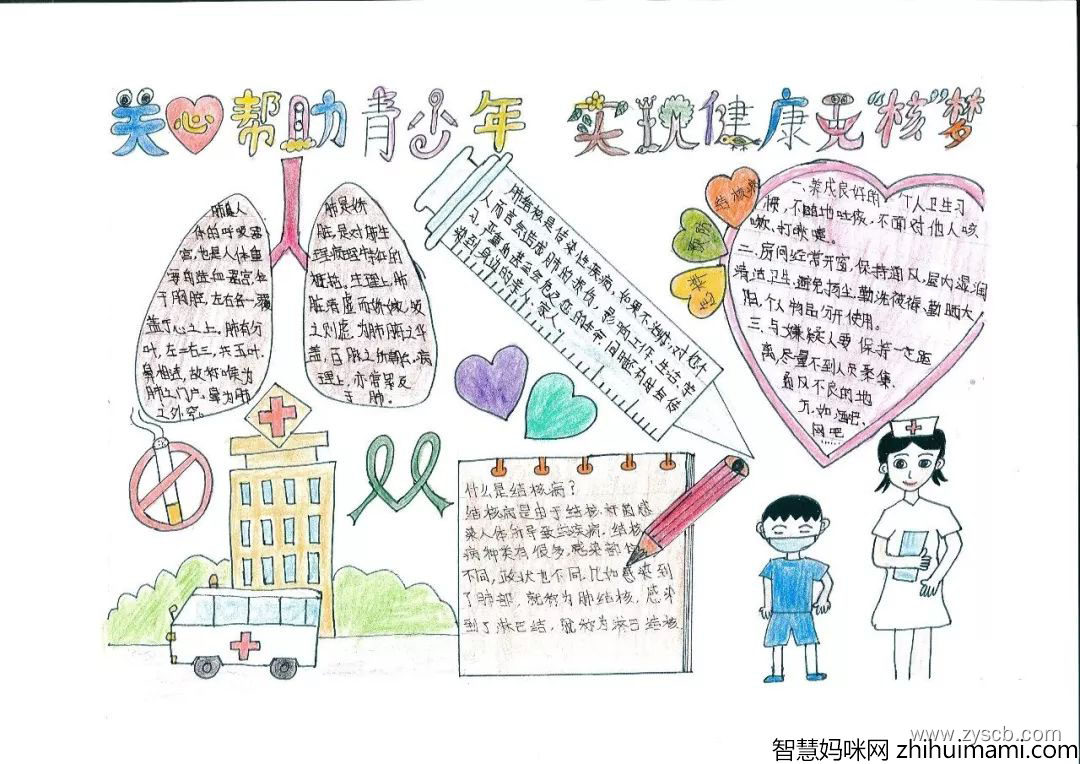 关心帮助青少年 实现健康无“核”梦
肺是人
体的呼吸器
官,也是人体重
要的造血器官,位
于胸腔,左右各一,覆
盖于心之上。肺有分
叶,左二右三,共五叶。
鼻相通,故称喉为
肺之门户,鼻为肺
之外窍。
肺是娇
脏,是对肺生
理病理特征的
概括。生理上,肺
脏清虚而娇嫩,吸
之则
为肺脏之华
盖,百脉之
病
理上,
肺。
肺结核是传染性疾病,如果不治疗,对您个
人而言,会造成肺的损伤,影响工作、生活、学
习,严重的甚至会危及您的生命,同时还会
染到身边的亲人、家人。
结核病
预防
一、养成良好的个人卫生习
惯,不随地吐痰,不面对他人咳
嗽、打喷嚏。
二、房间经常开窗,保持通风,屋内湿润
清洁卫生,避免扬尘,勤洗被褥,勤晒太
阳,个人物品分开使用。
三、与嫌疑人要保持一定距
离,尽量不到人员聚集、
通风不良的地
方,如酒吧、
网吧……
什么是结核病?
结核病是由于结核杆菌感
染人体所导致
疾病,结核
病种类有很多,感染部位
不同,症状也不同,比如感染到
了肺部,就称为肺结核,感染
到了淋巴结,就称为淋巴结核
www.zyscb.com
智慧妈咪网 zhihuimami.com